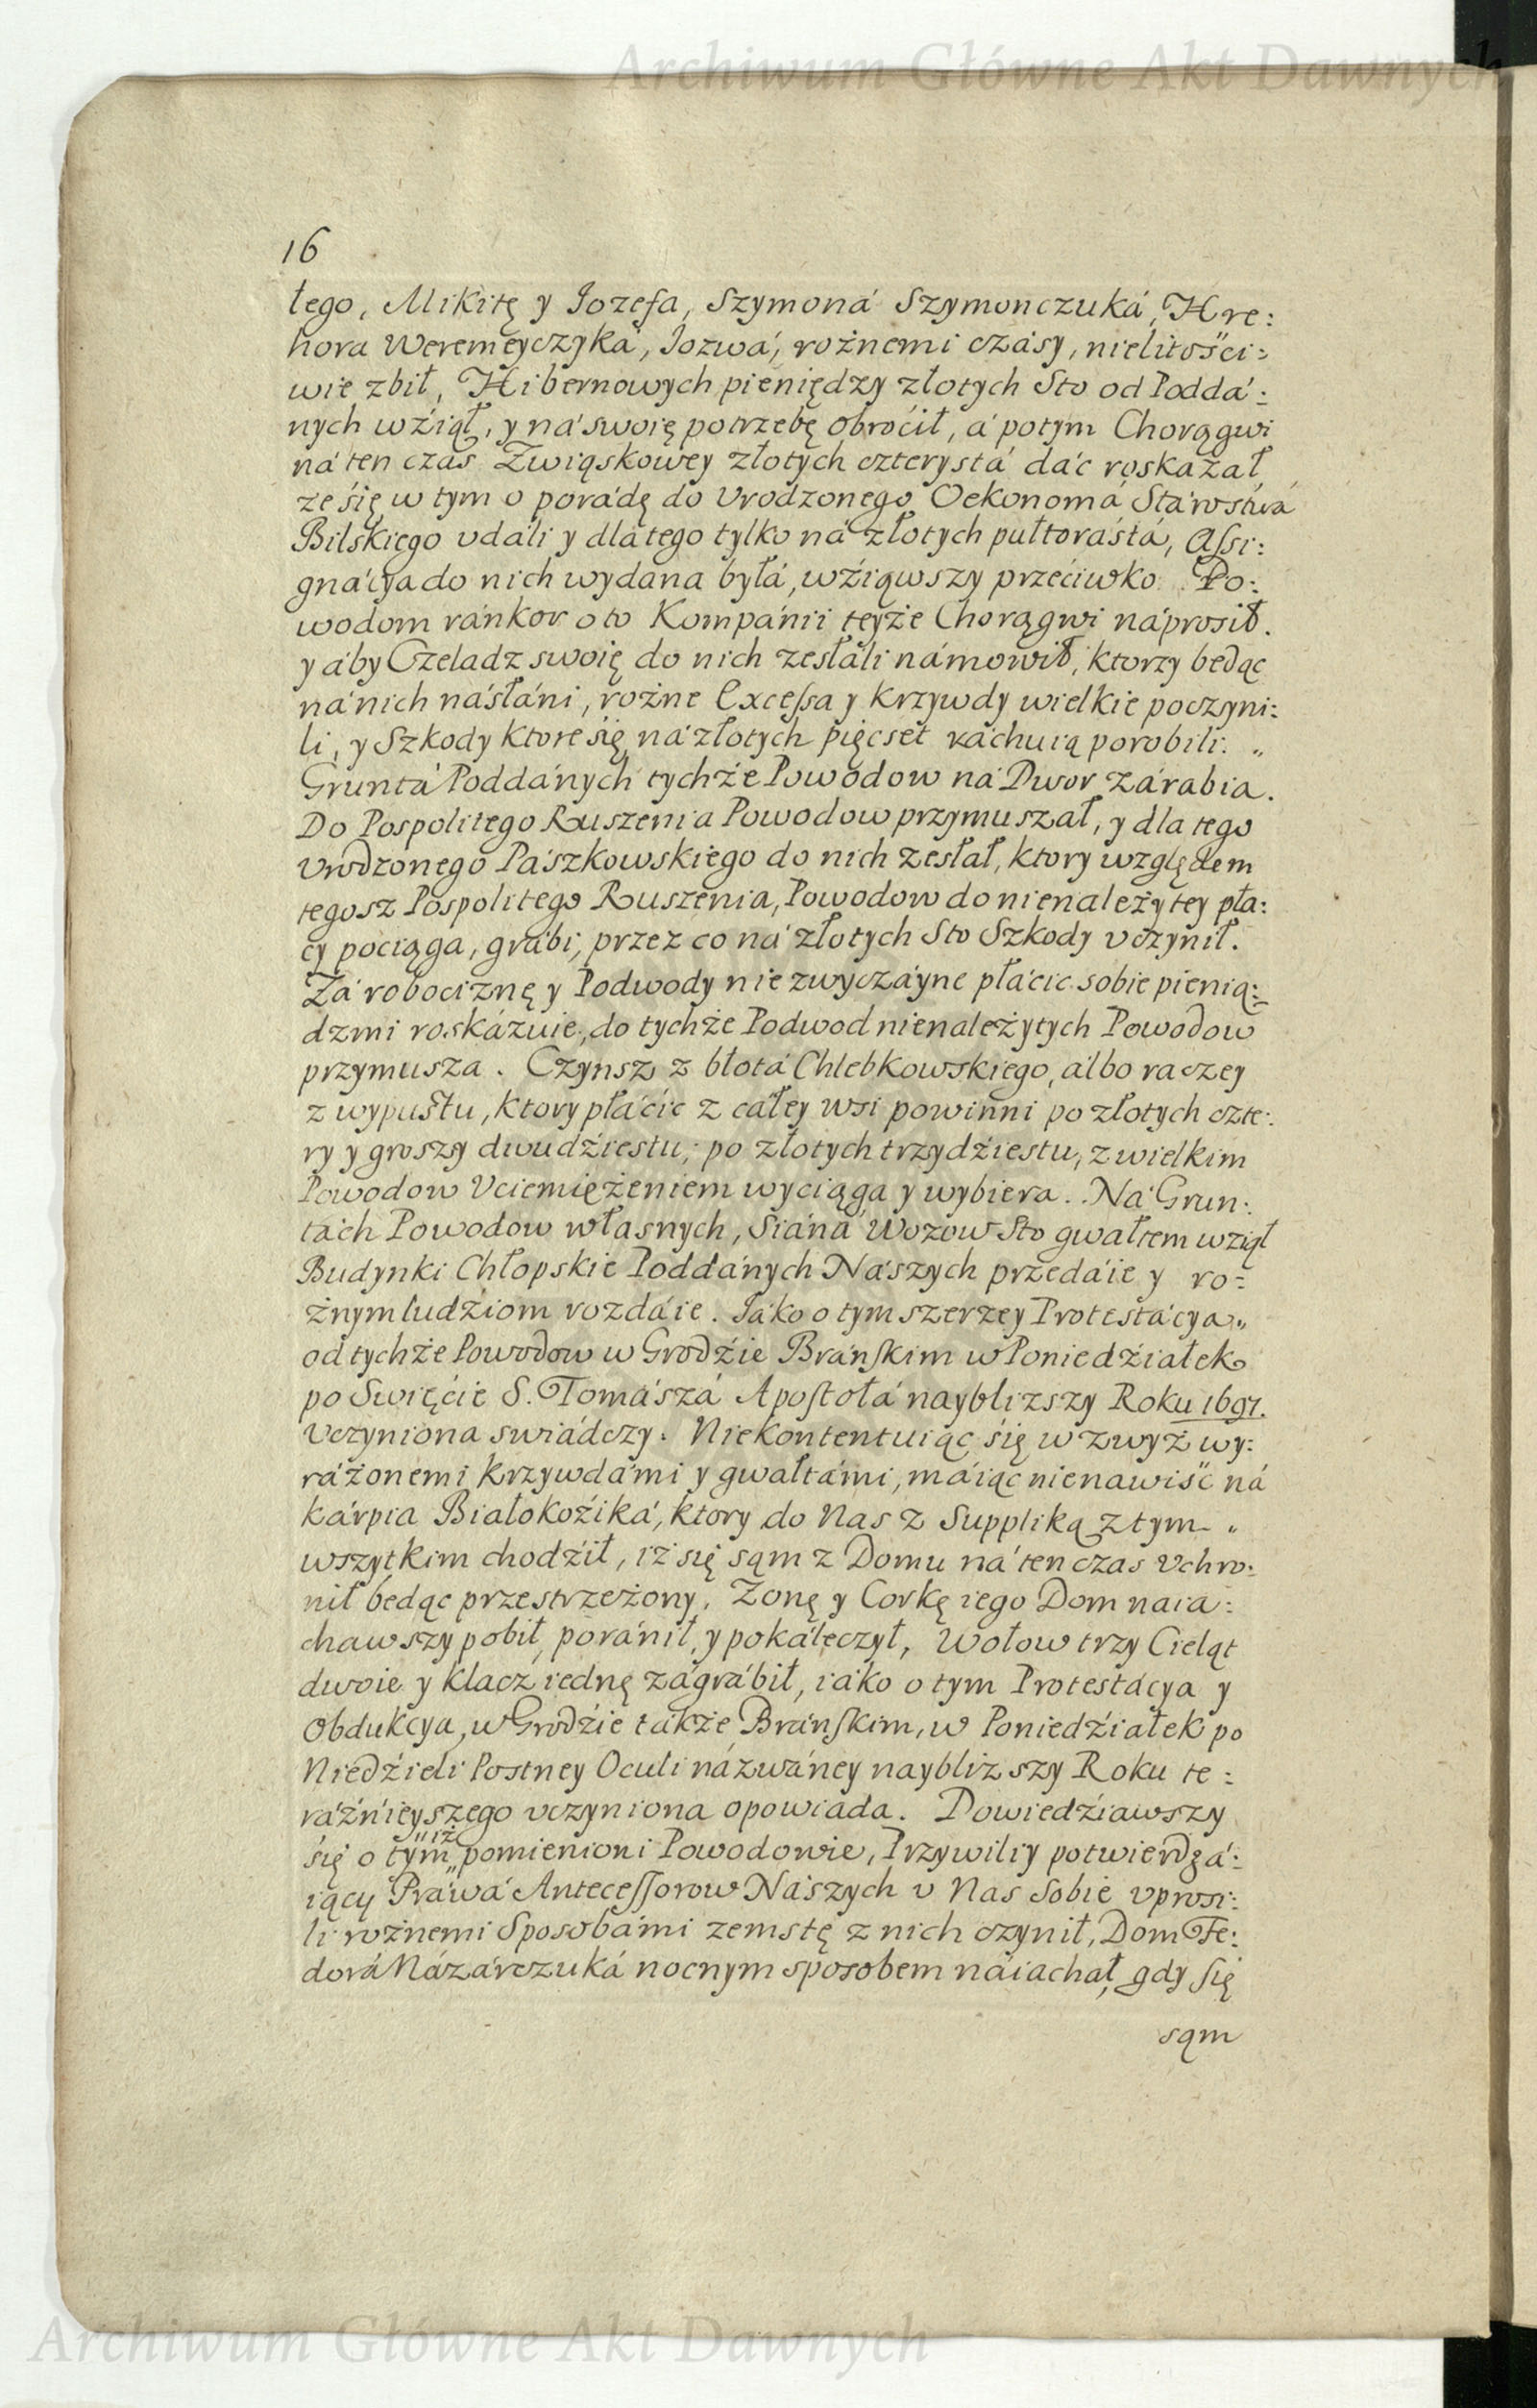 Archiwum Główne Akt Dawnych
16
łego, Mikitę y Jozefa, Szymoná Szymonczuká, Hre:
hora Weremeyczyka, Jozwá, rożnemi czásy, nielitości:
wie zbił, Hibernowych pieniędzy złotych Sto od Poddá:
nych wźiął, y ná swoię potrzebę obroćił, á potym Chorągwi
ná ten czas Zwiąskowey złotych czterystá dáć roskazał,
ze się w tym o porádę do Vrodzonego Oekonomá Stárostwá
Bilskiego vdáli y dlatego tylko ná złotych pułtorástá, Assi:
gnácya do nich wydana byłá, wźiąwszy przećiwko Po:
wodom ránkor o to Kompánii teyże Chorągwi náprosił.
y áby Czeladz swoię do nich zesłáli námowił, ktorzy będąc
ná nich násłáni, rożne Excessa y krzywdy wielkie poczyni:
li, y Szkody ktore się ná złotych pięcset ráchuią porobili. „
Gruntá Poddánych tychże Powodow ná Dwor zárabia.
Do Pospolitego Ruszenia Powodow przymuszał, y dla tego
Vrodzonego Pászkowskiego do nich zesłał, ktory względem
tegosz Pospolitego Ruszenia, Powodow do nienależytey pła:
cy pociąga, grábi, przez co ná złotych Sto Szkody vczynił.
Zá robociznę y Podwody nie zwyczáyne płácic sobie pienią:
dzmi roskázuie, do tychże Podwod nienależytych Powodow
przymusza. Czynsz z błotá Chlebkowskiego, álbo raczey
z wypustu, ktory płácić z cáłey wsi powinni po złotych czte:
ry y groszy dwudźiestu, po złotych trzydźiestu, z wielkim
Powodow Vciemiężeniem wyciąga y wybiera. Ná Grun:
tách Powodow własnych, Siáná Wozow Sto gwałtem wziął
Budynki Chłopskie Poddánych Nászych przedáie y ro:
żnym ludźiom rozdáie. Jáko o tym szerzey Protestácya „
od tychże Powodow w Grodźie Bránskim w Poniedźiałek
po Swięćie S. Tomászá Apostołá nayblizszy Roku 1697.
Vczyniona swiádczy. Niekontentuiąc się w zwyż wy:
ráżonemi krzywdámi y gwałtámi, máiąc nienawiść ná
kárpia Białokoźiká, ktory do Nas z Suppliką z tym „
wszytkim chodźił, iż się sąm z Domu ná ten czas vchro:
nił będąc przestrzeżony, Zonę y Corkę iego Dom naia:
chawszy pobił, poránił, y pokáleczył, Wołow trzy Cieląt
dwoie y klacz iednę zágrábił, iáko o tym Protestácya y
Obdukcya, w Grodźie tákże Bránskim, w Poniedźiałek po
Niedźieli Postney Oculi názwáney nayblizszy Roku te:
ráźnieyszego vczyniona opowiada. Dowiedźiawszy
się o tym iż pomienioni Powodowie, Przywiliy potwierdzá:
iący Práwá Antecessorow Nászych v Nas Sobie vprosi:
li rożnemi Sposobámi zemstę z nich czynił, Dom Fe:
dorá Názárczuká nocnym sposobem náiachał, gdy się
sąm
Archiwum Główne Akt Dawnych